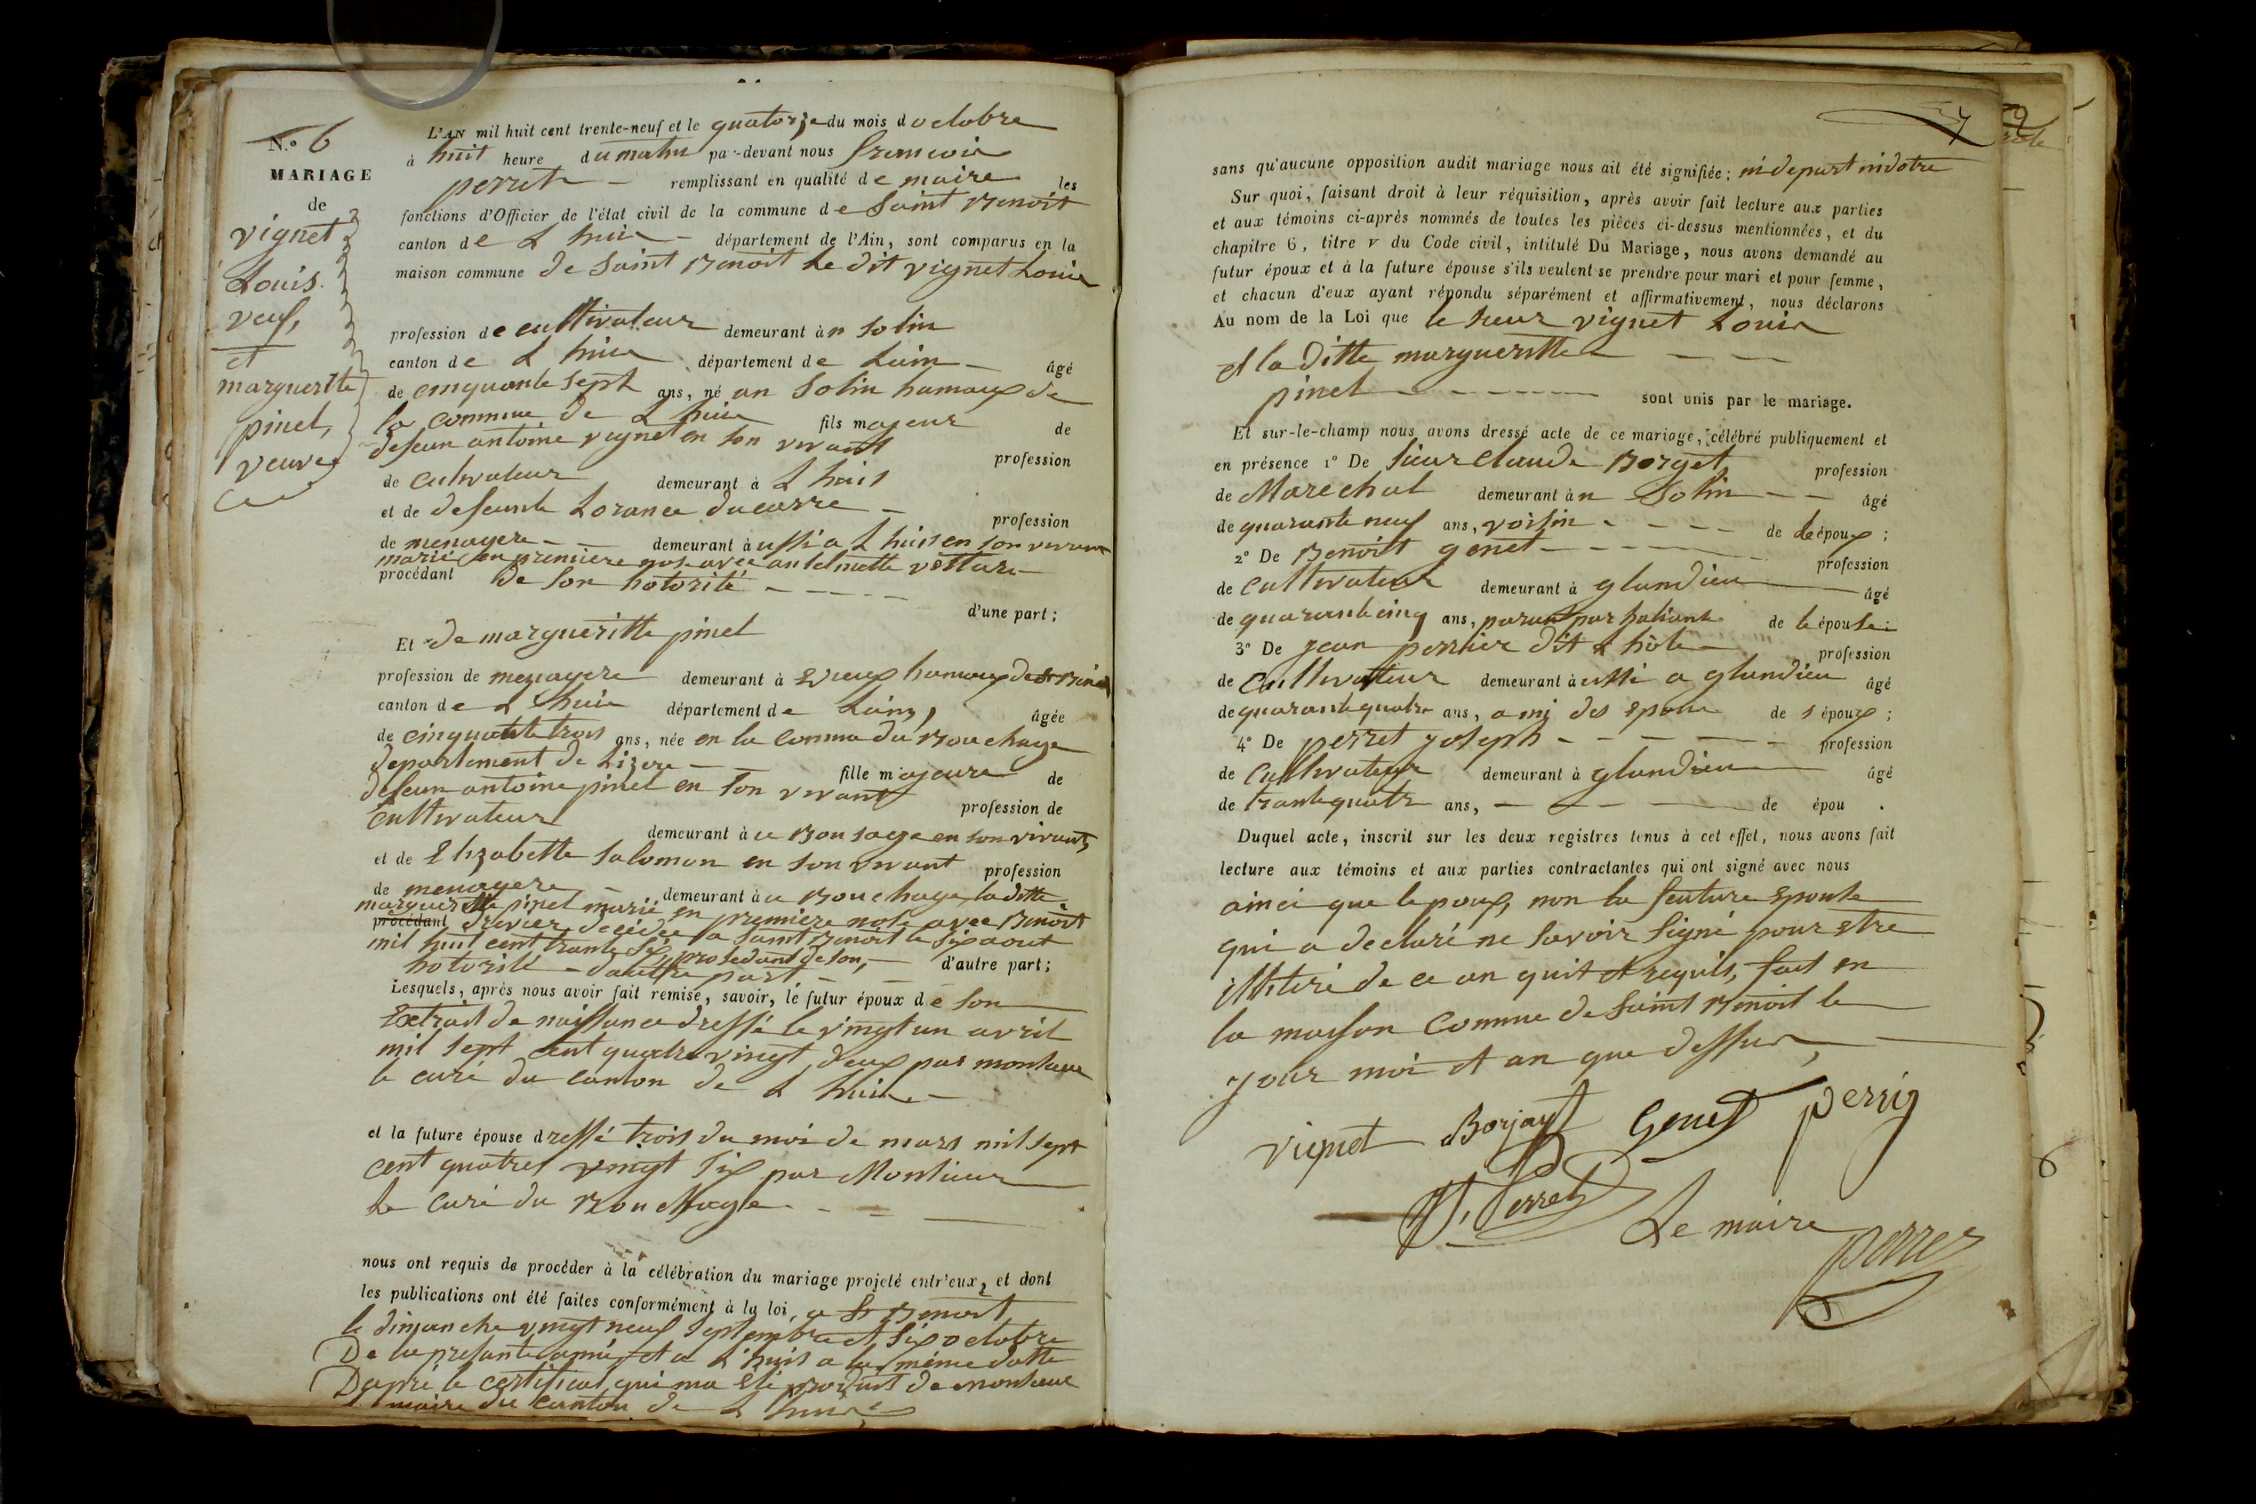 N.º 6
MARIAGE
de
vignet
Louis.
veuf,
et
margueritte
pinet,
veuve
L'AN mil huit cent trente-neuf et le quatorze du mois d octobre
à huit heure du matin par-devant nous francois
perret remplissant en qualité de maire les
fonctions d'Officier de l'état civil de la commune de Saint Benoit
canton de L huis département de l'Ain, sont comparus en la
maison commune de Saint Benoit Le dit vignet Louis
profession de cultivateur demeurant àn Solin
canton de L huis département de Lain âgé
de cinquante sept ans, né an Solin hamaux de
la commune de L huis fils majeur de
defeun antoine vignet en son vivant profession
de cultivateur demeurant à L huis
et de defeunte Lorance ducarre profession
de menagere demeurant à ussi a L huis en son vivant
marié en premiere nose avec antelmette vettard
procédant de son hotorité
d'une part;
Et de margueritte pinet
profession de menagere demeurant à Evieux hamaux de St Benoit
canton de L huis département de Lain, âgée
de cinquante trois ans, née en la commune du Bouchage
departement de Lizere fille majeure de
defeun antoine pinet en son vivant profession de
cultivateur demeurant à u Bousage en son vivant
et de Elizabette Salomon en son vivant profession
de menagere demeurant à u Bouchage, la ditte
margueritte pinet marié en premiere nose avec Benoit
procédant drevier décédée a Saint Benoit le six aout
mil huit cent trante six prosedant de son,
hotorité d'autre part d'autre part;
Lesquels, après nous avoir fait remise, savoir, le futur époux de son
Extrait de naissance dressé le vingt un avril
mil sept cent quatre vingt deux par monsieur
le curé du canton de L huis
et la future épouse dressé trois du moi de mars mil sept
cent quatre vingt six par Monsieur
Le curé du Bouchage
nous ont requis de procéder à la célébration du mariage projeté entr'eux, et dont
les publications ont été faites conformément à la loi, a St Benoit
le dimanche vingt neuf Septembre et six octobre
De la presante année et a L huis a la même datte
Dapré le certificat qui ma été produit de monsieur
maire du canton de L huis
7
sans qu'aucune opposition audit mariage nous ait été signifiée; ni de part ni dotre
Sur quoi, faisant droit à leur réquisition, après avoir fait lecture aux parties
et aux témoins ci-après nommés de toutes les pièces ci-dessus mentionnées, et du
chapitre 6, titre v du Code civil, intitulé Du Mariage, nous avons demandé au
futur époux et à la future épouse s'ils veulent se prendre pour mari et pour femme,
et chacun d'eux ayant répondu séparément et affirmativement, nous déclarons
Au nom de la Loi que le sieur vignet Louis
et la ditte margueritte
pinet sont unis par le mariage.
Et sur-le-champ nous avons dressé acte de ce mariage, célébré publiquement et
en présence 1º De Sieur Claude Borget profession
de Marechal demeurant àn Solin âgé
de quarante neuf ans, voisin de le époux;
2º De Benoit genet profession
de cultivateur demeurant à glandieu âgé
de quarante cinq ans, parant par haliance de le épouse
3º De jean perrier dit L hôte profession
de Cultivatteur demeurant à ussi a glandieu âgé
de quarante quatre ans, ami des epoux de s époux;
4º De perret joseph profession
de Cultivateur demeurant à glandieu âgé
de trante quatre ans, de épou .
Duquel acte, inscrit sur les deux registres tenus à cet effet, nous avons fait
lecture aux témoins et aux parties contractantes qui ont signé avec nous
ainci que lepoux, non la feuture epouse
qui a declaré ne savoir signé pour etre
illiteré de ce an quit et requils, fait en
la maison commune de Saint Benoit le
jour moi et an que dessus,
vignet Borjayt Genet perrig
J. Perret
Le maire
perret